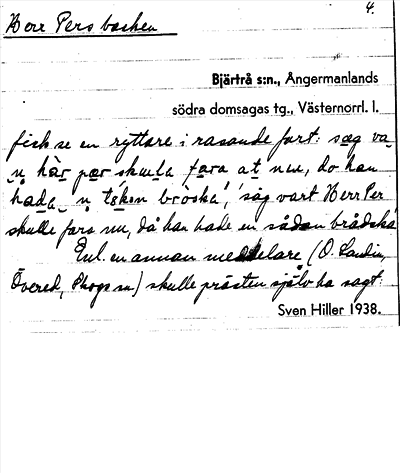 Herr Pers backen
4.
Bjärtrå s:n., Ångermanlands
södra domsagas tg., Västernorrl. l.
fick se en ryttare i rasande fart: sæg va
n hàr pær skuula fara at nuu, do han
hada n tôken bròska', 'säg vart Herr Per
skulle fara nu, då han hade en sådan brådska'
Enl. en annan meddelare (O. Sundin,
Övered, Skogs sn) skulle prästen själv ha sagt:
Sven Hiller 1938.